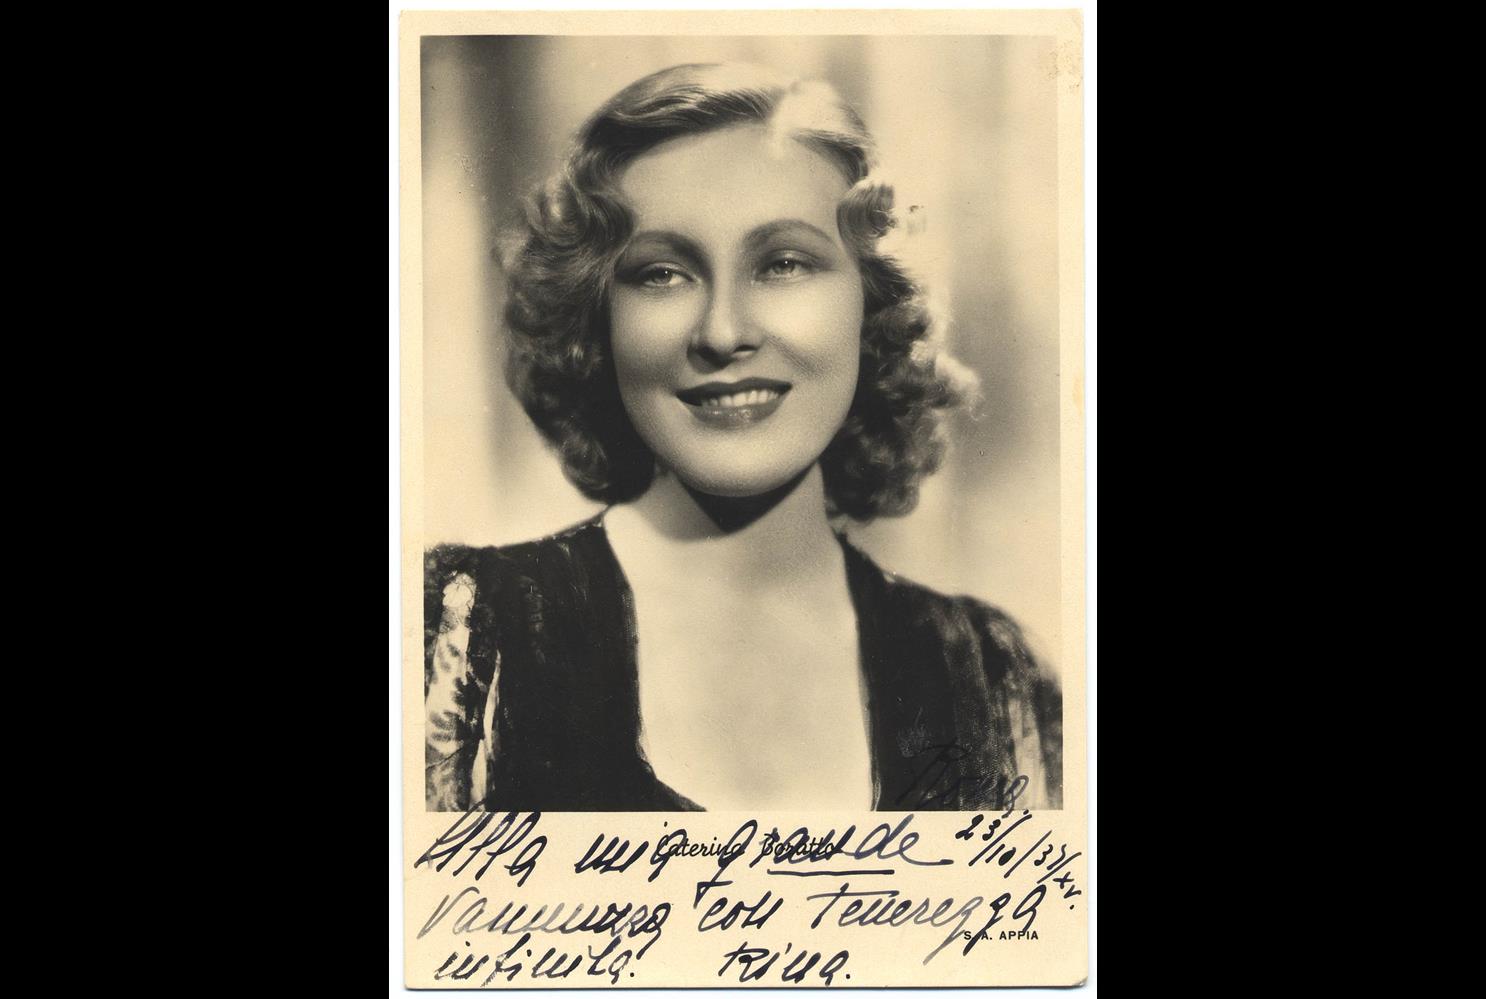 Roma.
23/10/37/XV.
Caterina Boratto
Alla mia grande
con Tenerezza
infinita. Rina.
S. A. APPIA